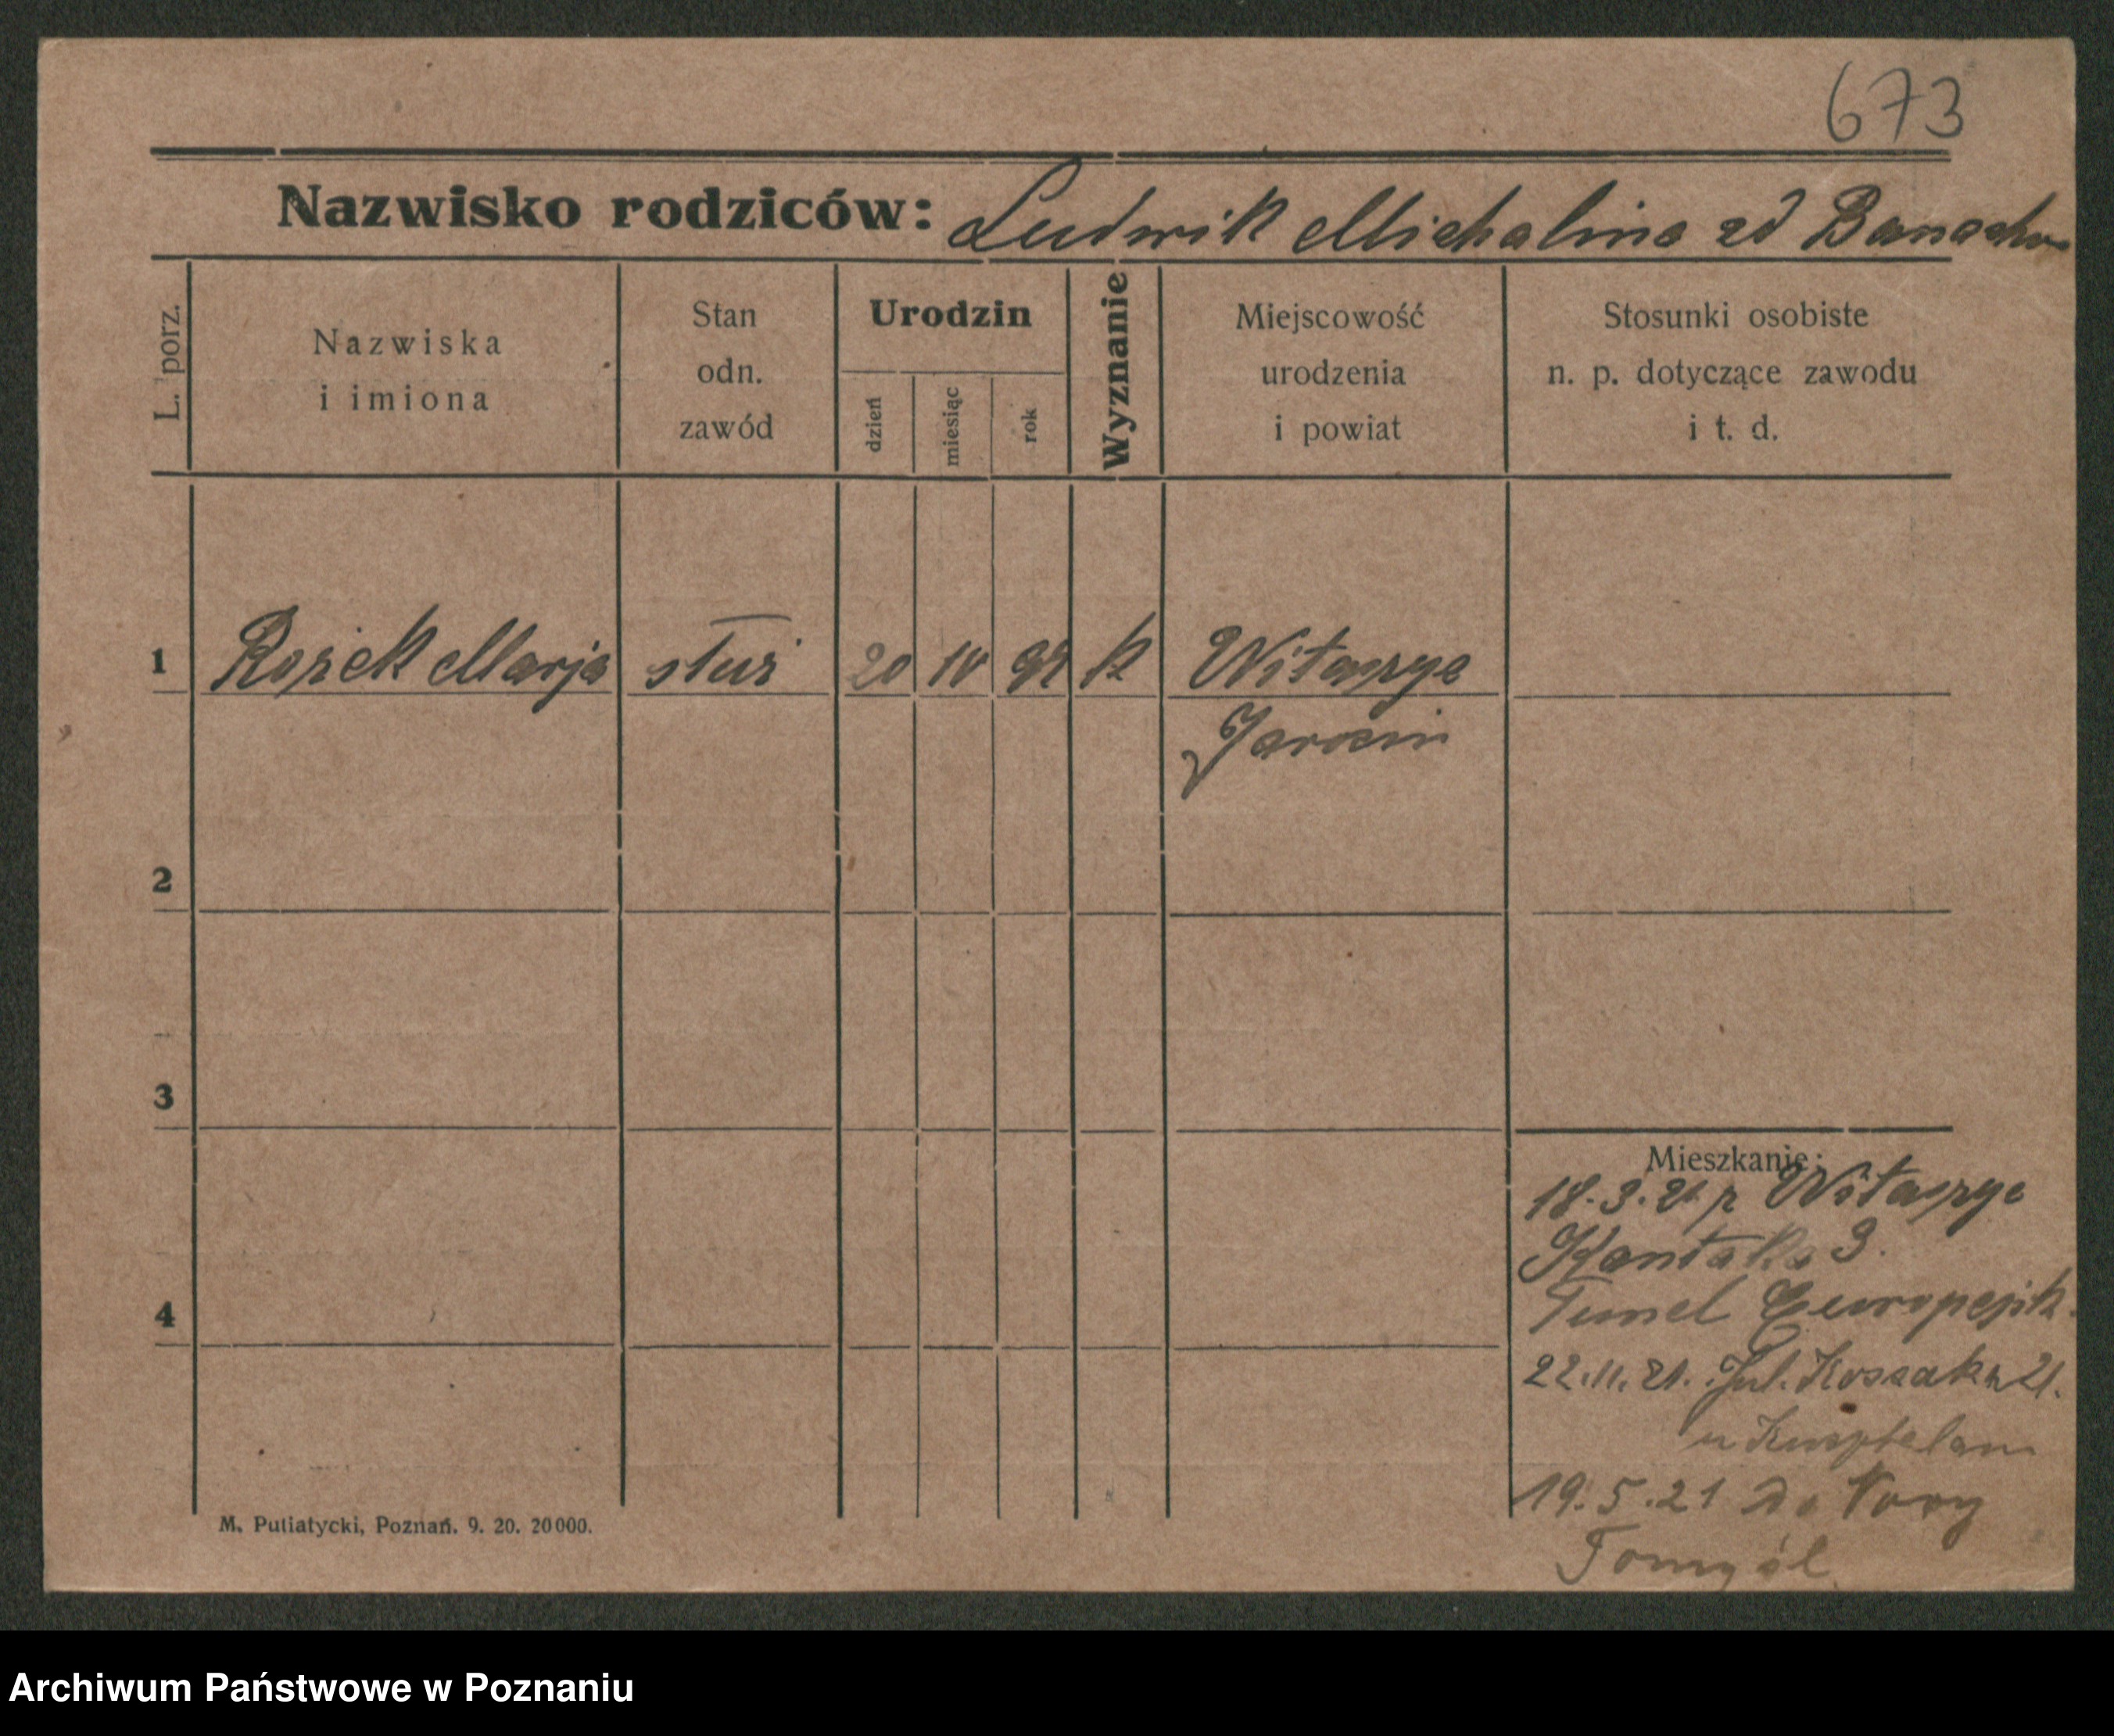 673
Nazwisko rodziców: Ludwik Michalina zd Banach
L. porz.
Nazwiska
i imiona
Stan
odn.
zawód
Urodzin
dzień
miesiąc
rok
Wyznanie
Miejscowość
urodzenia
i powiat
Stosunki osobiste
n. p. dotyczące zawodu
i t. d.
1 Rożek Marja służ 20 10 92 k Witaszyce
Jarocin
2
3
4
Mieszkanie:
18.3.21 z Witaszyc
Kantaka 3.
Tunel Europejsk.
22.11.21. Jul. Kossaka 21.
u
19.5.21 do Nowy
Tomyśl
M. Putiatycki, Poznań. 9. 20. 20000.
Archiwum Państwowe w Poznaniu